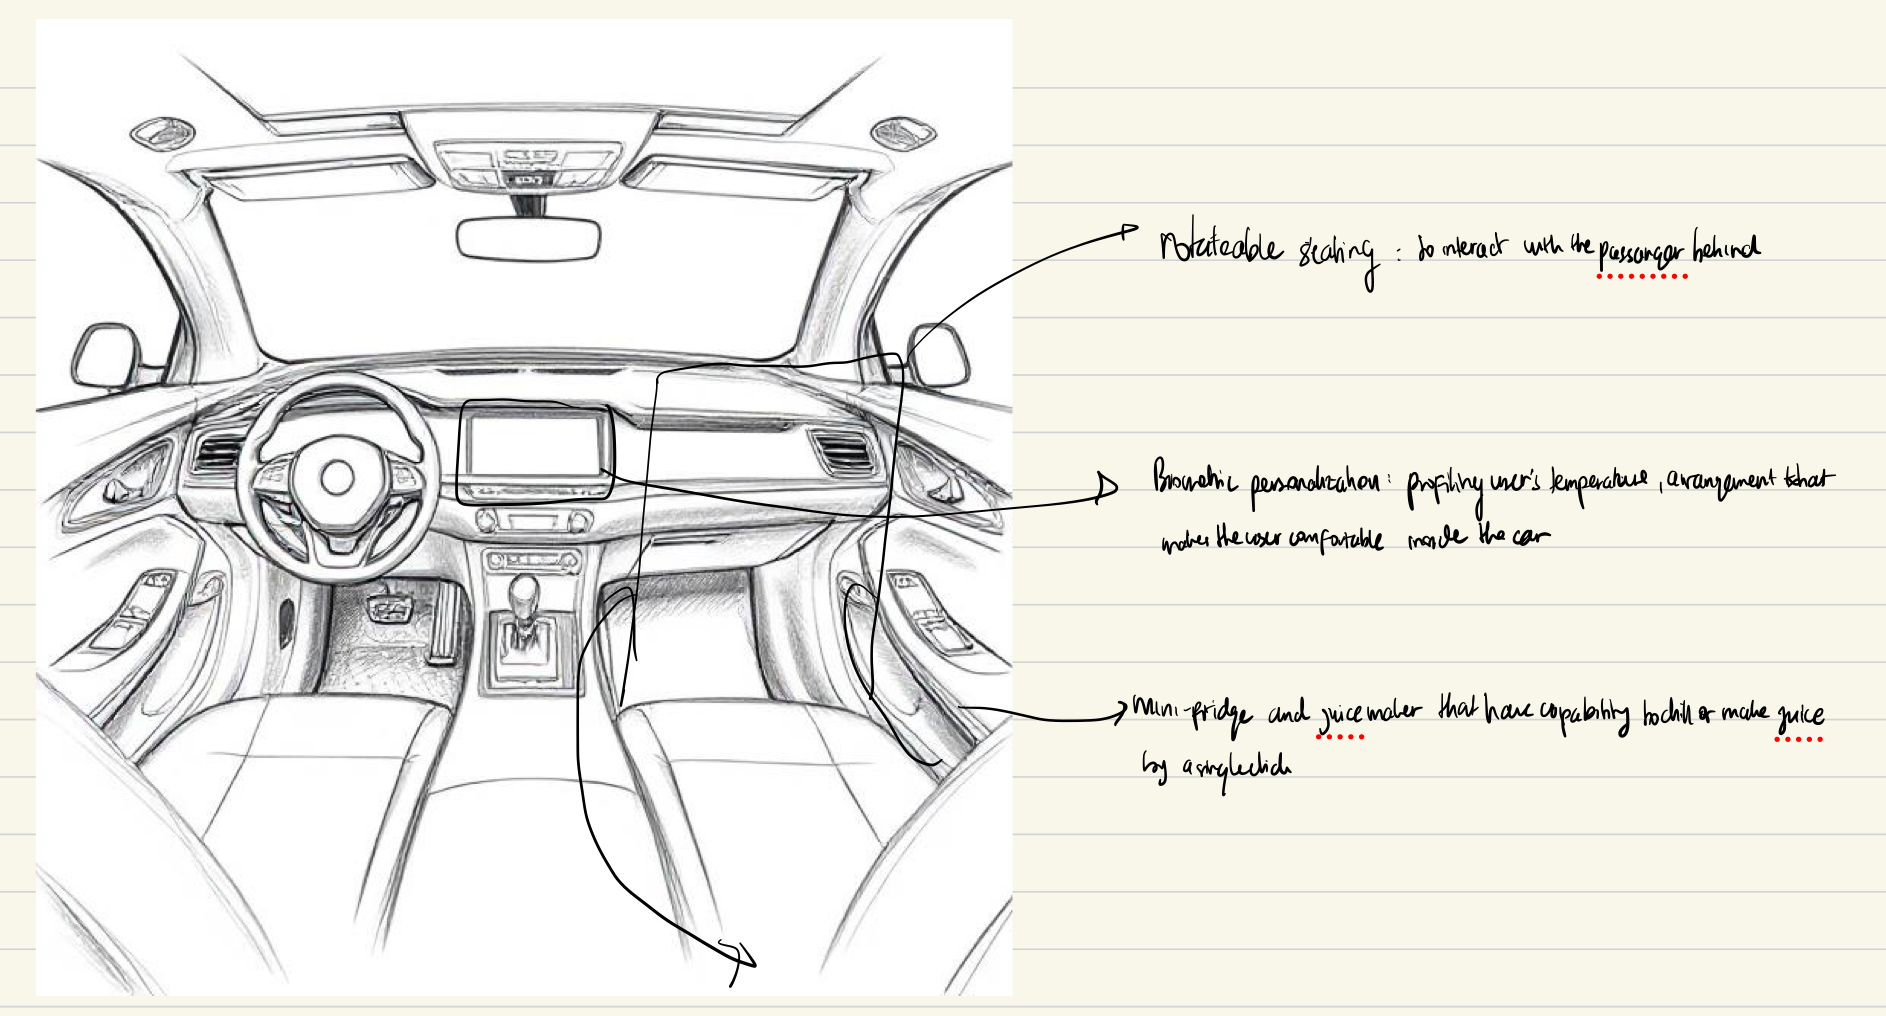 Rotateable seating : to interact with the passanger behind
Biometric personalization : profiling user's temperature, arrangement that
makes the user comfortable inside the car
Mini-fridge and juice maker that have capability to chill or make juice
by a single click